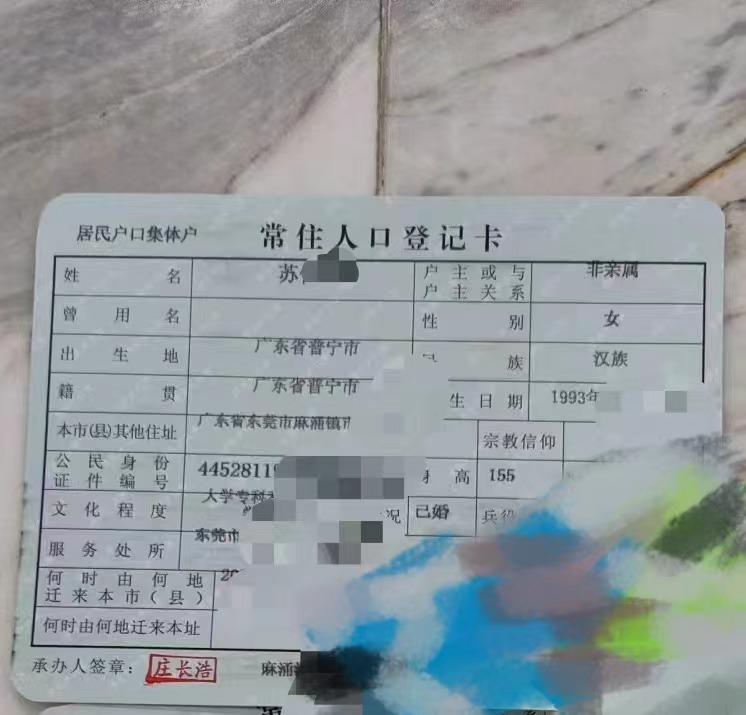 居民户口集体户 常住人口登记卡
姓名 苏 户主或与户主关系 非亲属
曾用名 性别 女
出生地 广东省普宁市 族 汉族
籍贯 广东省普宁市 生日期 1993年
本市(县)其他住址 广东省东莞市麻涌镇 宗教信仰
公民身份证件编号 4452811 身高 155
文化程度 大学专科 况 已婚 兵役
服务处所 东莞市
何时由何地迁来本市(县) 20
何时由何地迁来本址
承办人签章: 庄长浩 麻涌